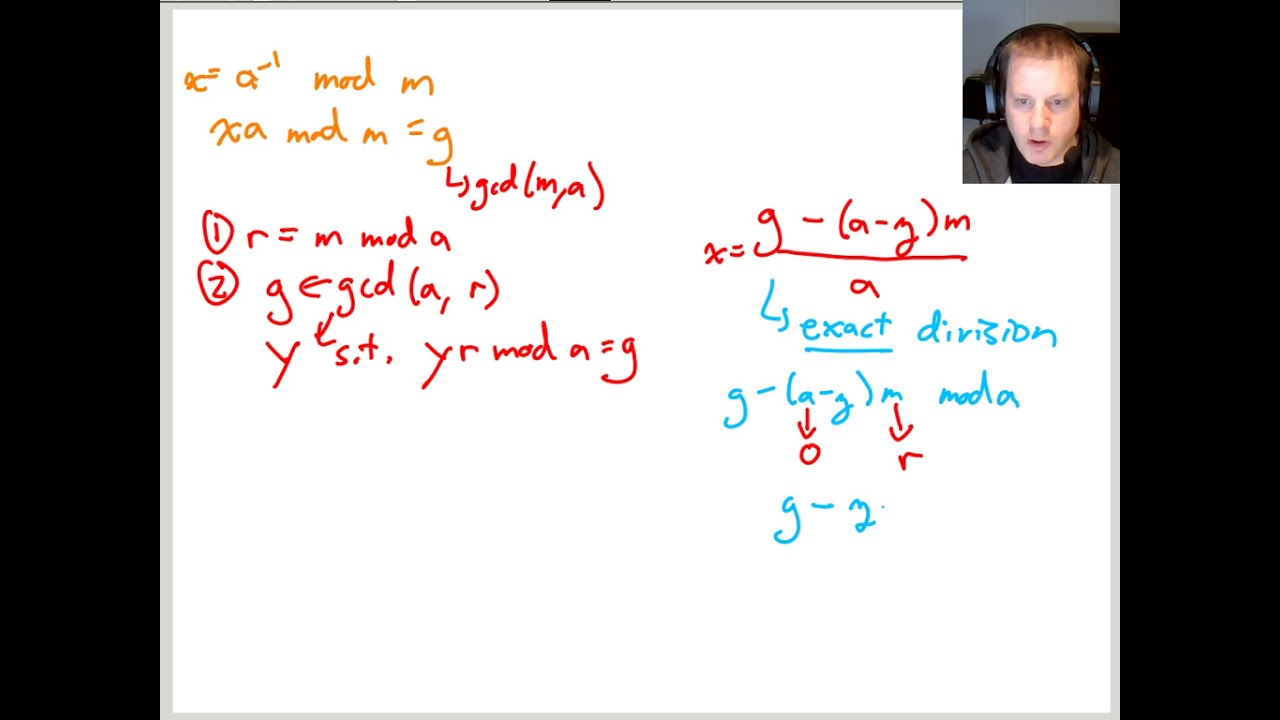 x = a⁻¹ mod m
xa mod m = g
↳ gcd(m,a)
① r = m mod a
② g ← gcd(a, r)
y s.t. yr mod a = g
x = g - (a-y)m
a
↳ exact division
g - (a-y)m mod a
0 r
g - y